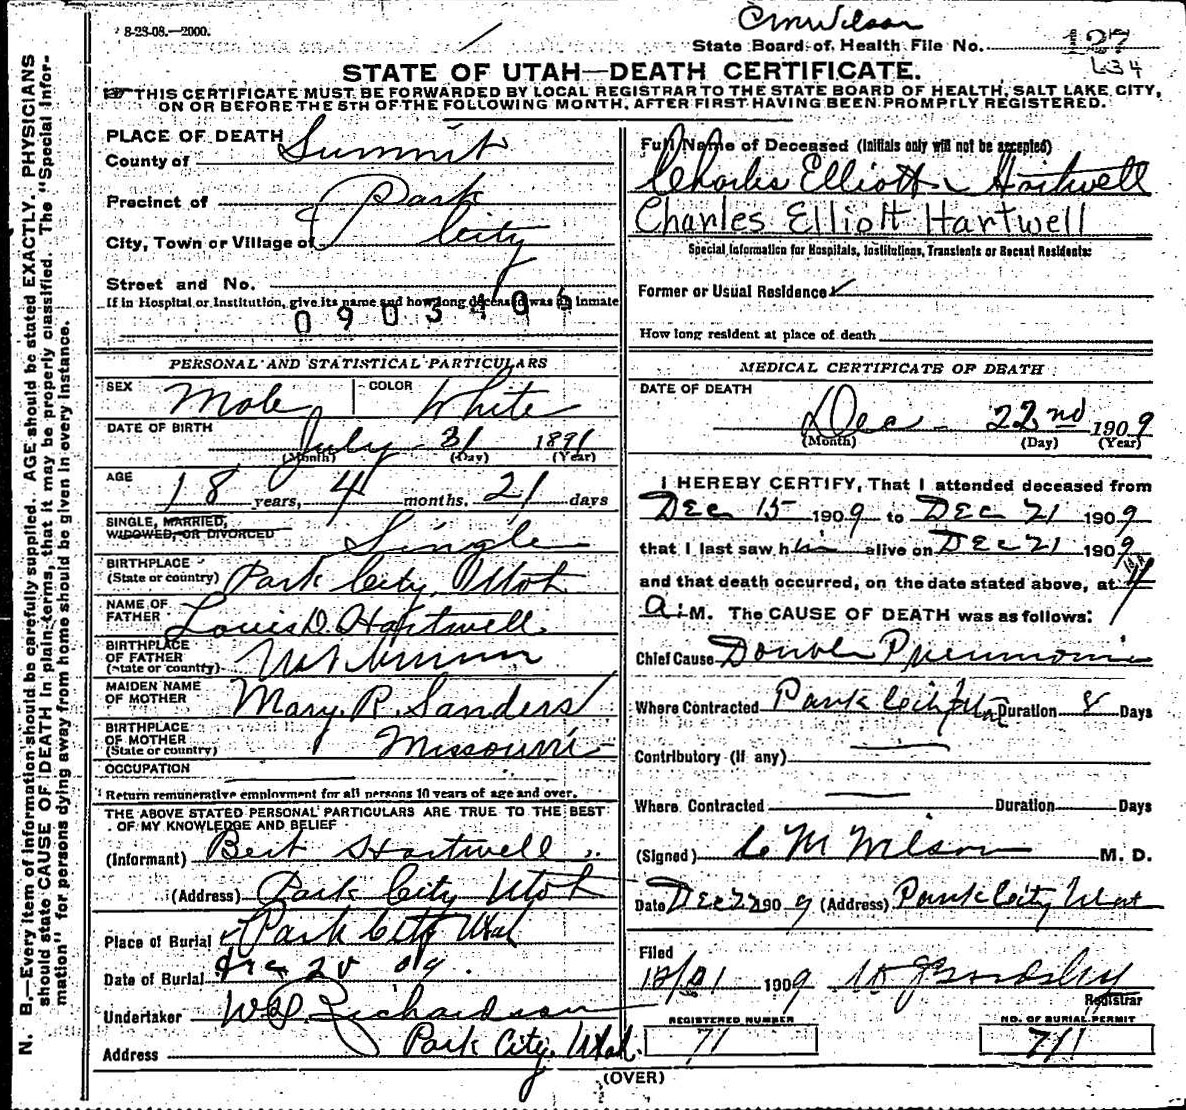 8-23-08.—2000.
C M Wilson
State Board of Health File No. 127
L34
STATE OF UTAH—DEATH CERTIFICATE.
THIS CERTIFICATE MUST BE FORWARDED BY LOCAL REGISTRAR TO THE STATE BOARD OF HEALTH, SALT LAKE CITY,
ON OR BEFORE THE 5TH OF THE FOLLOWING MONTH, AFTER FIRST HAVING BEEN PROMPLY REGISTERED.
N. B.—Every item of information should be carefully supplied. AGE should be stated EXACTLY. PHYSICIANS
should state CAUSE OF DEATH in plain terms, that it may be properly classified. The "Special Infor-
mation" for persons dying away from home should be given in every instance.
PLACE OF DEATH
County of Summit
Precinct of Park
City, Town or Village of City
Street and No.
If in Hospital or Institution, give its name and how long deceased was in inmate
0903406
PERSONAL AND STATISTICAL PARTICULARS
SEX Male COLOR White
DATE OF BIRTH July 31 1891
(Month) (Day) (Year)
AGE 18 years, 4 months, 21 days
SINGLE, MARRIED,
WIDOWED, OR DIVORCED Single
BIRTHPLACE
(State or country) Park City, Utah
NAME OF
FATHER Louis D. Hartwell
BIRTHPLACE
OF FATHER
(State or country)
MAIDEN NAME
OF MOTHER Mary R. Sanders
BIRTHPLACE
OF MOTHER
(State or country) Missouri
OCCUPATION
Return remunerative employment for all persons 10 years of age and over.
THE ABOVE STATED PERSONAL PARTICULARS ARE TRUE TO THE BEST
OF MY KNOWLEDGE AND BELIEF
(Informant) Bert Hartwell
(Address) Park City Utah
Place of Burial Park City Utah
Date of Burial 09.
Undertaker Richardson
Address Park City, Utah.
Full Name of Deceased (Initials only will not be accepted)
Charles Elliott Hartwell
Charles Elliott Hartwell
Special Information for Hospitals, Institutions, Transients or Recent Residents:
Former or Usual Residence ✓
How long resident at place of death
MEDICAL CERTIFICATE OF DEATH
DATE OF DEATH
Dec - 22nd 1909
(Month) (Day) (Year)
I HEREBY CERTIFY, That I attended deceased from
Dec 15 1909 to Dec 21 1909
that I last saw him alive on Dec 21 1909
and that death occurred, on the date stated above, at
a.M. The CAUSE OF DEATH was as follows:
Chief Cause Double Pneumonia
Where Contracted Park City Utah Duration 8 Days
Contributory (If any)
Where Contracted Duration Days
(Signed) C M Wilson M. D.
Date Dec 22 1909 (Address) Park City Utah
Filed
12/21 1909
Registrar
REGISTERED NUMBER
71
NO. OF BURIAL PERMIT
711
(OVER)